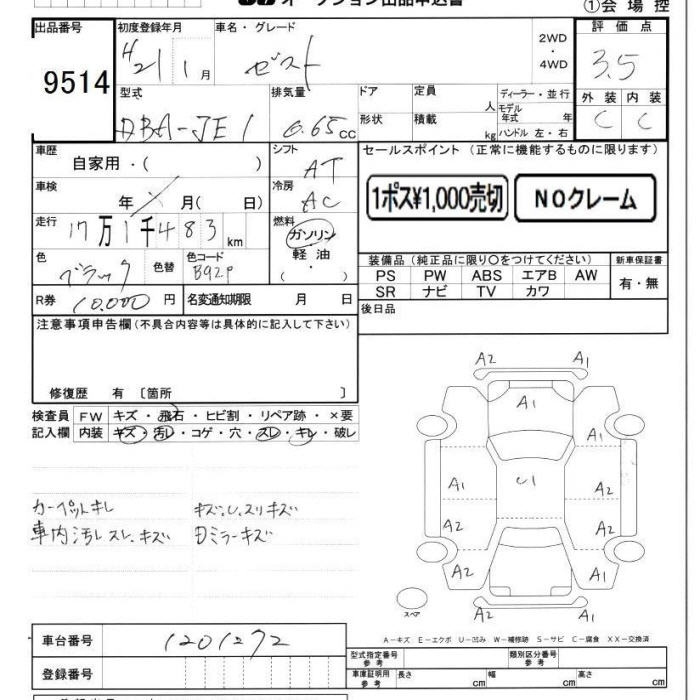 オークション出品申込書
①会場控
出品番号
9514
初度登録年月
H21 1月
車名・グレード
ゼスト
2WD
・
4WD
評価点
3.5
外装 内装
C C
型式
DBA-JE1
排気量
0.65cc
ドア
形状
定員
人
積載
kg
ディーラー・並行
モデル年式 年
ハンドル 左・右
車歴
自家用・( )
シフト
AT
車検
年 月( 日)
冷房
AC
走行
17万1千483km
燃料
ガソリン
軽油
・
( )
色
ブラック
色替
色コード
B92P
R券 10,000円
名変通知期限 月 日
セールスポイント (正常に機能するものに限ります)
1ポス¥1,000売切
NOクレーム
装備品 (純正品に限り○をつけてください)
PS PW ABS エアB AW
SR ナビ TV カワ
新車保証書
有・無
後日品
注意事項申告欄 (不具合内容等は具体的に記入して下さい)
修復歴 有 〔箇所 〕
検査員記入欄
FW キズ・飛石・ヒビ割・リペア跡・×要
内装 キズ・汚レ・コゲ・穴・スレ・キレ・破レ
カーペットキレ
車内汚レ スレ、キズ
キズ、U、スリキズ
日ミラーキズ
A2 A1
A1
A1 U1 A2
A2 A2
A2 A1
A2
スペア
A-キズ E-エクボ U-凹み W-補修跡 S-サビ C-腐食 XX-交換済
車台番号
1201272
登録番号
型式指定番号
参考
類別区分番号
参考
車庫証明用
参考
長さ cm 幅 cm 高さ cm